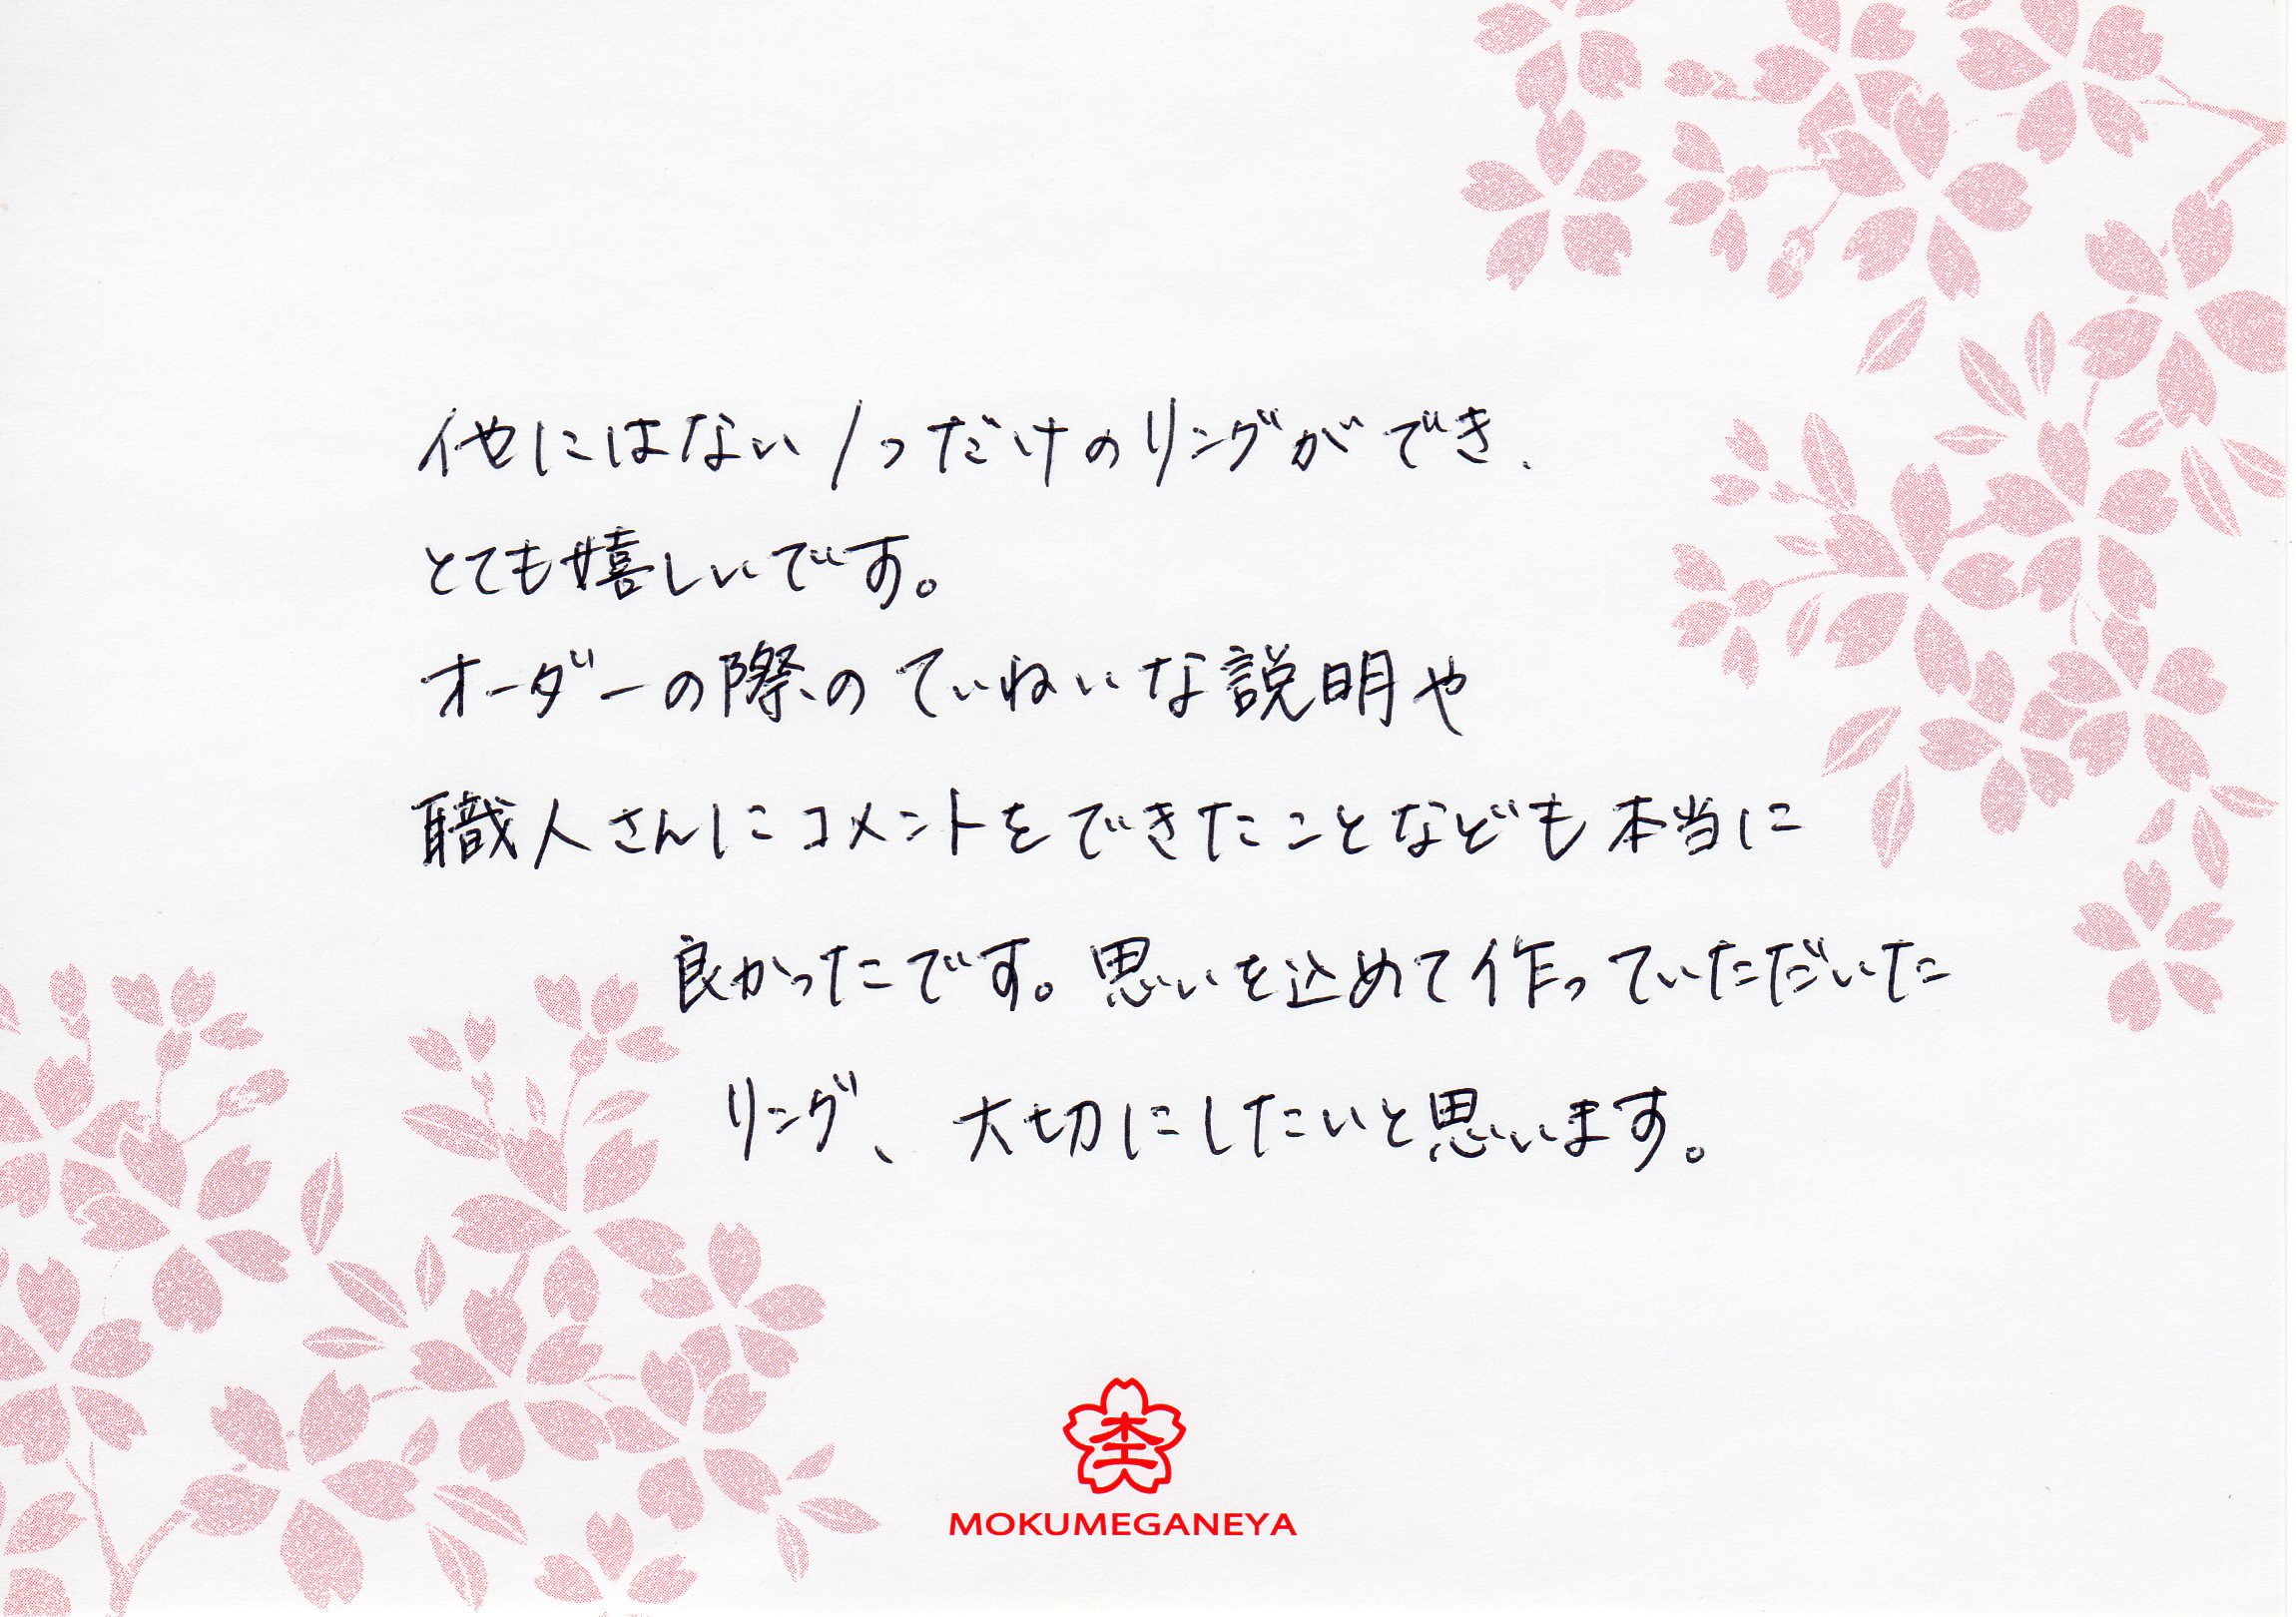 他にはない1つだけのリングができ、
とても嬉しいです。
オーダーの際のていねいな説明や
職人さんにコメントをできたことなども本当に
良かったです。思いを込めて作っていただいた
リング、大切にしたいと思います。
MOKUMEGANEYA